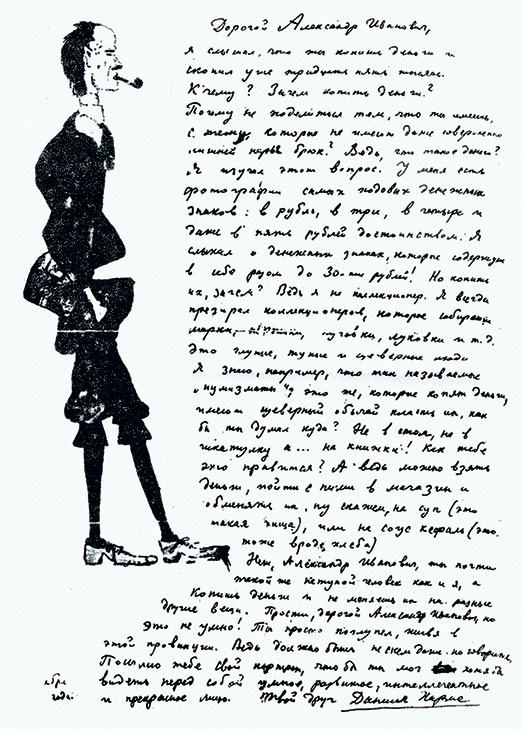 Дорогой Александр Иванович,
я слышал, что ты копишь деньги и
скопил уже тридцать пять тысяч.
К чему? Зачем копить деньги?
Почему не поделиться тем, что ты имеешь,
с теми, которые не имеют даже совершенно
лишней пары брюк? Ведь, что такое деньги?
Я изучал этот вопрос. У меня есть
фотографии самых ходовых денежных
знаков: в рубль, в три, в четыре и
даже в пять рублей достоинством. Я
слыхал о денежных знаках, которые содержат
в себе разом до 30-ти рублей! Но копить
их, зачем? Ведь я не коллекционер. Я всегда
презирал коллекционеров, которые собирают
марки, пуговки, луковки и т.д.
Это глупые, тупые и суеверные люди
Я знаю, например, что так называемые
"нумизматы", это те, которые копят деньги,
имеют суеверный обычай класть их, как
бы ты думал куда? Не в стол, не в
шкатулку а... на книжки! Как тебе
это нравится? А ведь можно взять
деньги, пойти с ними в магазин и
обменять их, ну скажем, на суп (это
такая пища), или на соус кефаль (это
тоже вроде хлеба)
Нет, Александр Иванович, ты почти
такой же не тупой человек как и я, а
копишь деньги и не меняешь их на разные
другие вещи. Прости, дорогой Александр Иванович, но
это не умно! Ты просто поглупел, живя в
этой провинции. Ведь должно быть не с кем даже поговорить.
Посылаю тебе свой портрет, что бы ты мог хотя бы
видеть перед собой умное, развитое, интеллигентное
и прекрасное лицо. Твой друг Даниил Хармс